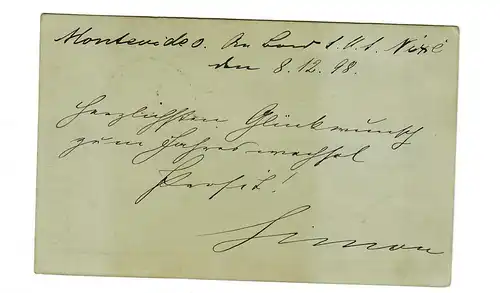 Montevideo. An Bord S.M.S. Nixe
den 8.12.98.
Herzlichsten Glückwunsch
zum Jahreswechsel
Prosit!
Simon